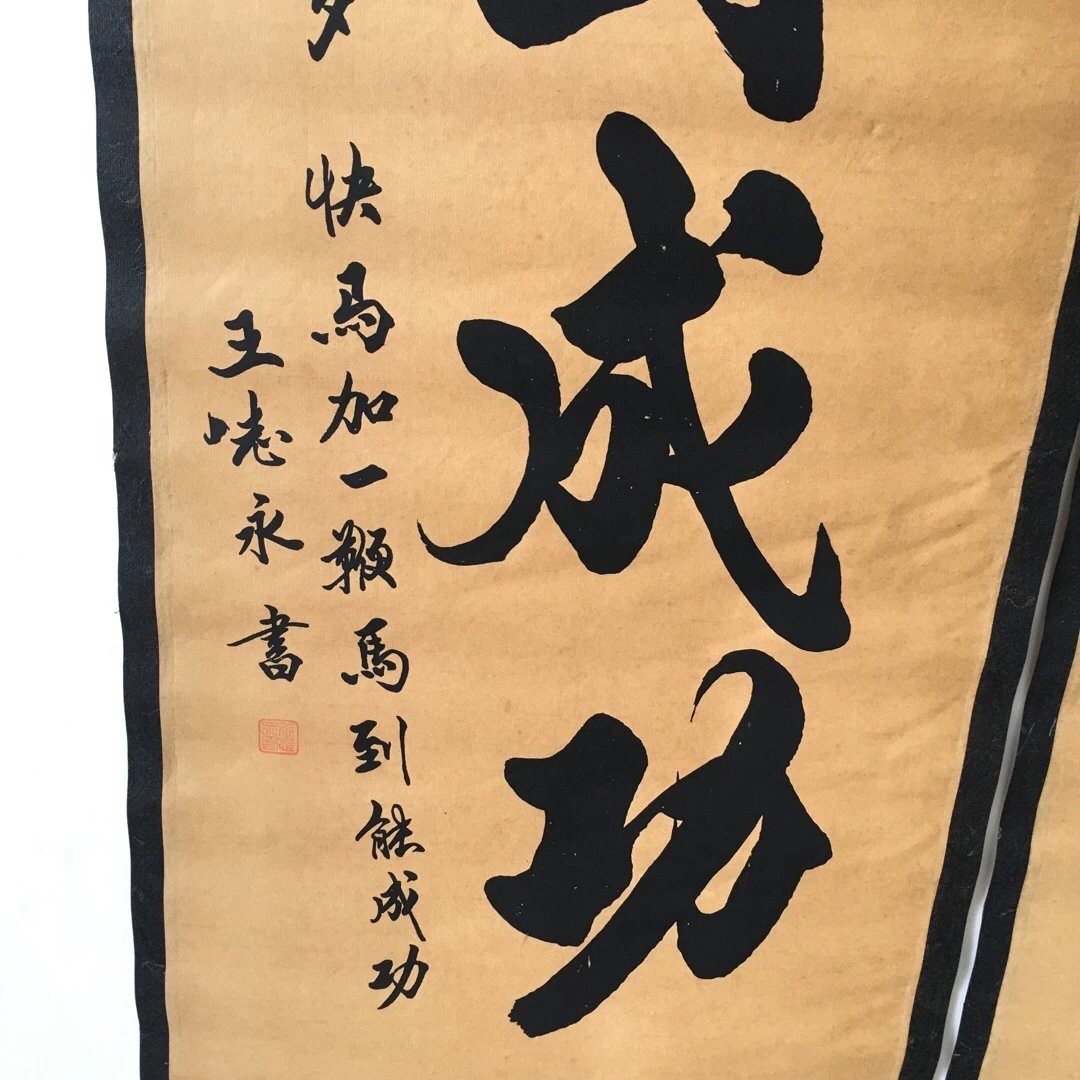 成功
快馬加一鞭馬到能成功
王永書